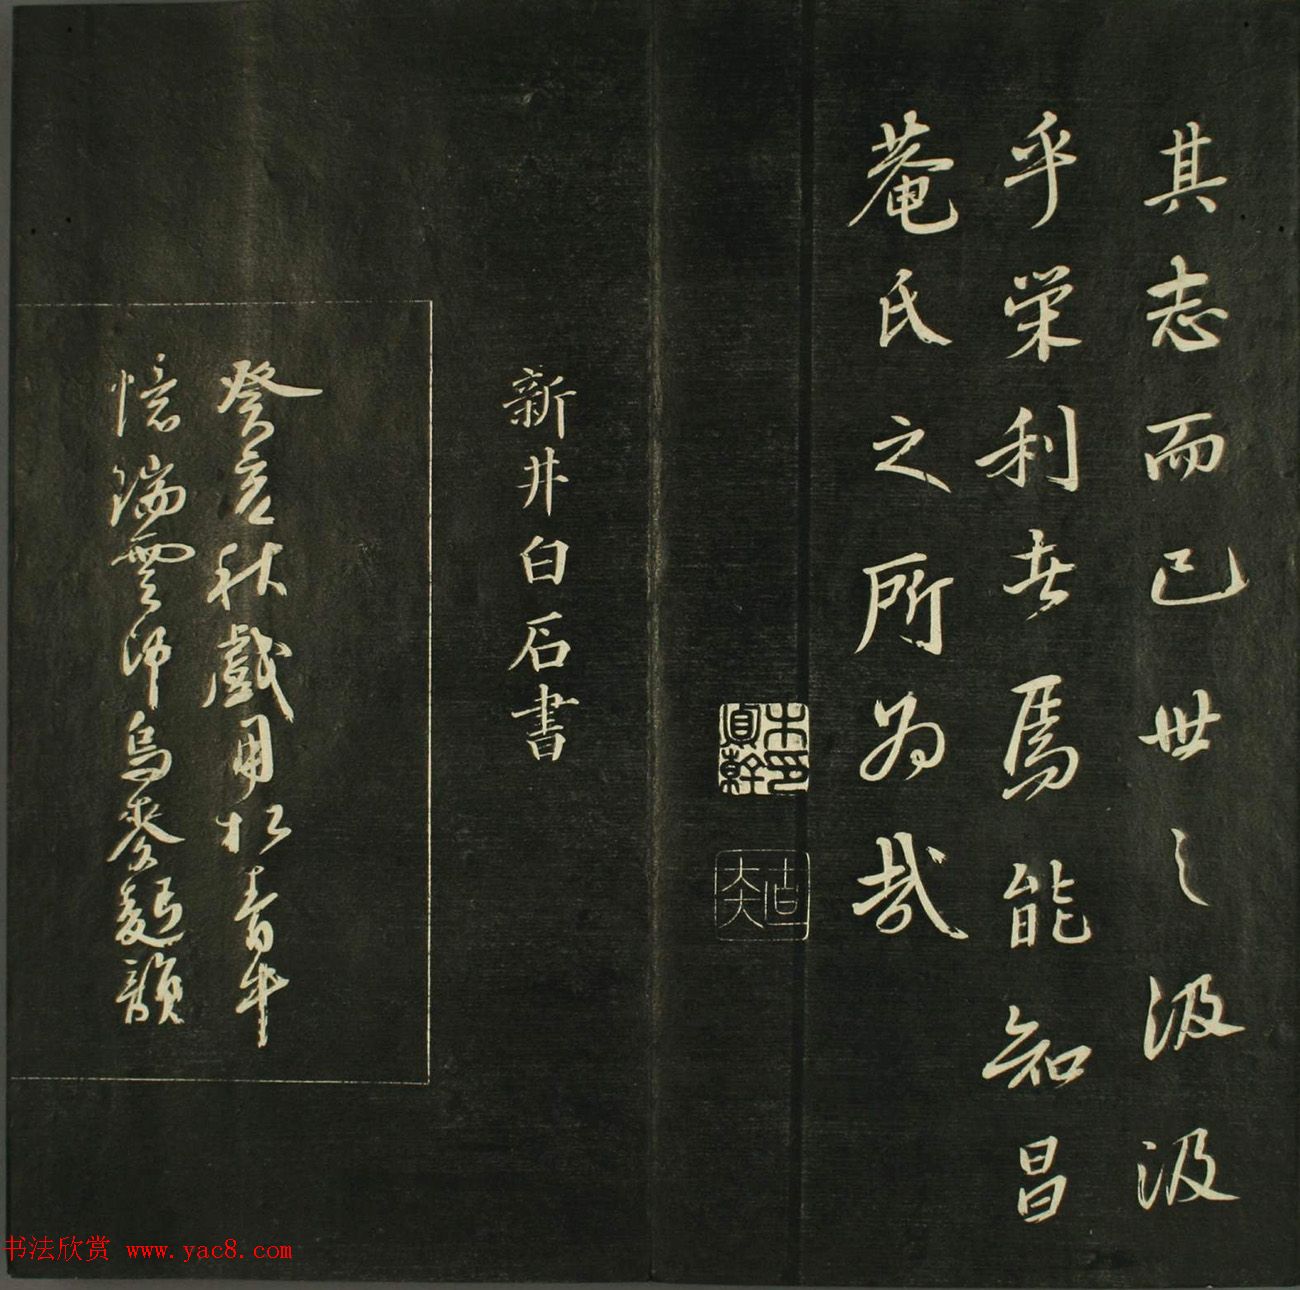 其志而已世之汲汲
乎栄利者焉能知昌
菴氏之所為哉
新井白石書
癸亥秋戯用松青牛
憶瑞雲沖烏麥韻
书法欣赏 www.yac8.com